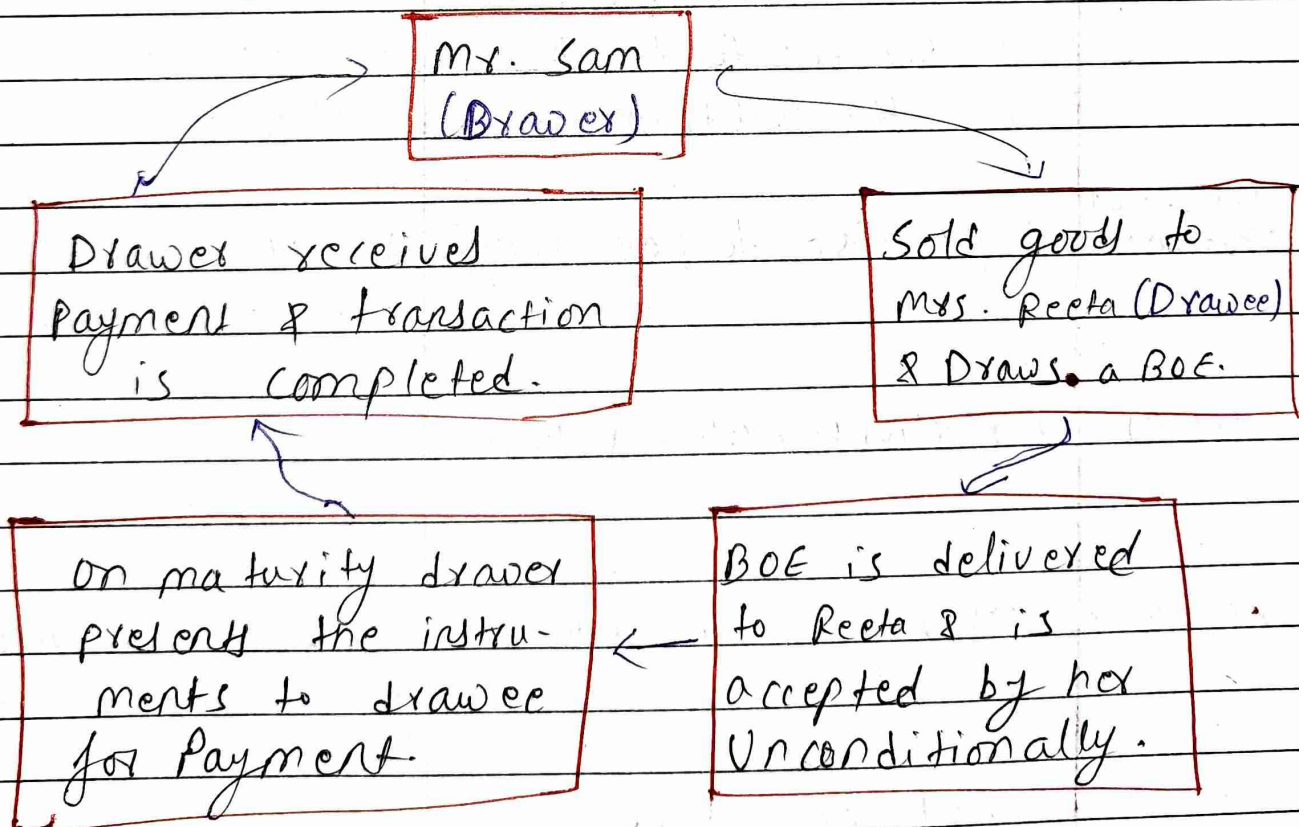 Mr. Sam
(Drawer)
Sold goods to
Mrs. Reeta (Drawee)
& Draws a BOE.
BOE is delivered
to Reeta & is
accepted by her
Unconditionally.
on maturity drawer
presents the instru-
ments to drawee
for Payment.
Drawer receives
Payment & transaction
is completed.